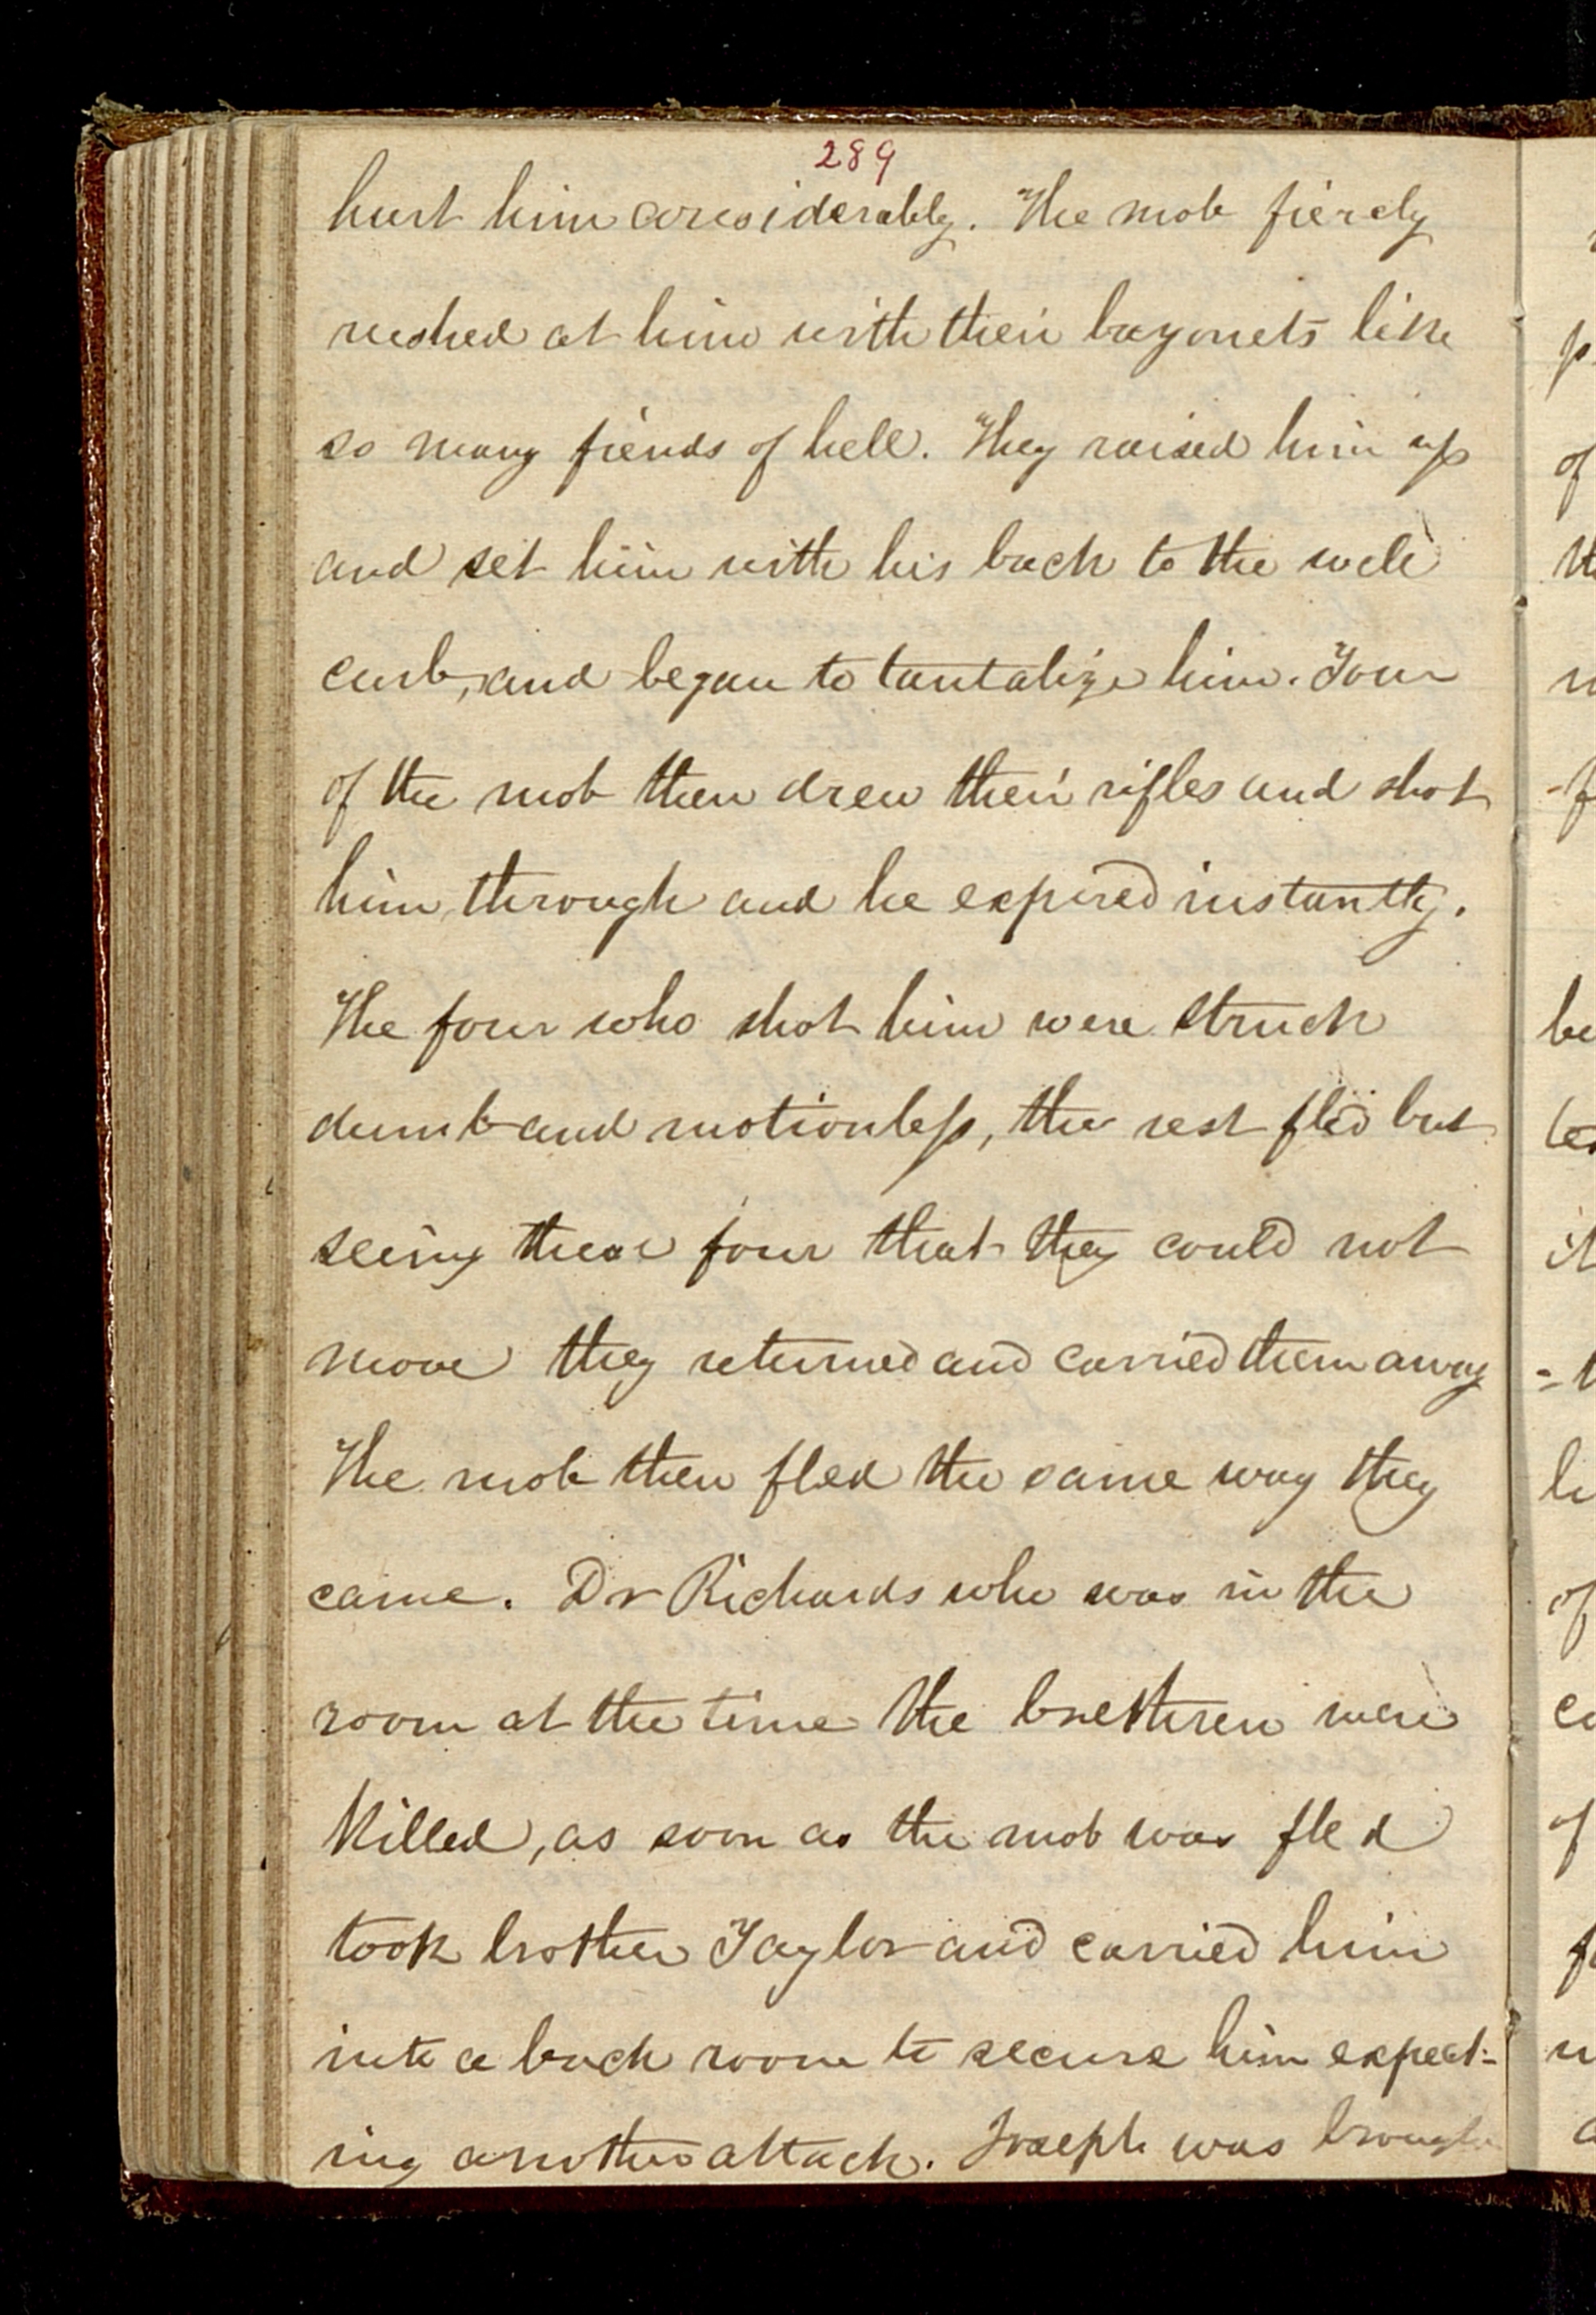 289
hurt him considerably. The mob fiercly
rushed at him with their bayonets like
so many fiends of hell. They raised him up
and set him with his back to the well
curb, and began to tantalize him. Four
of the mob then drew their rifles and shot
him through and he expired instantly.
The four who shot him were struck
dumb and motionless, the rest fled but
seeing these four that they could not
move they returned and carried them away
The mob then fled the same way they
came. Dr Richards who was in the
room at the time the brethren were
killed, as soon as the mob was fled
took brother Taylor and carried him
into a back room to secure him expect-
ing another attack. Joseph was brought